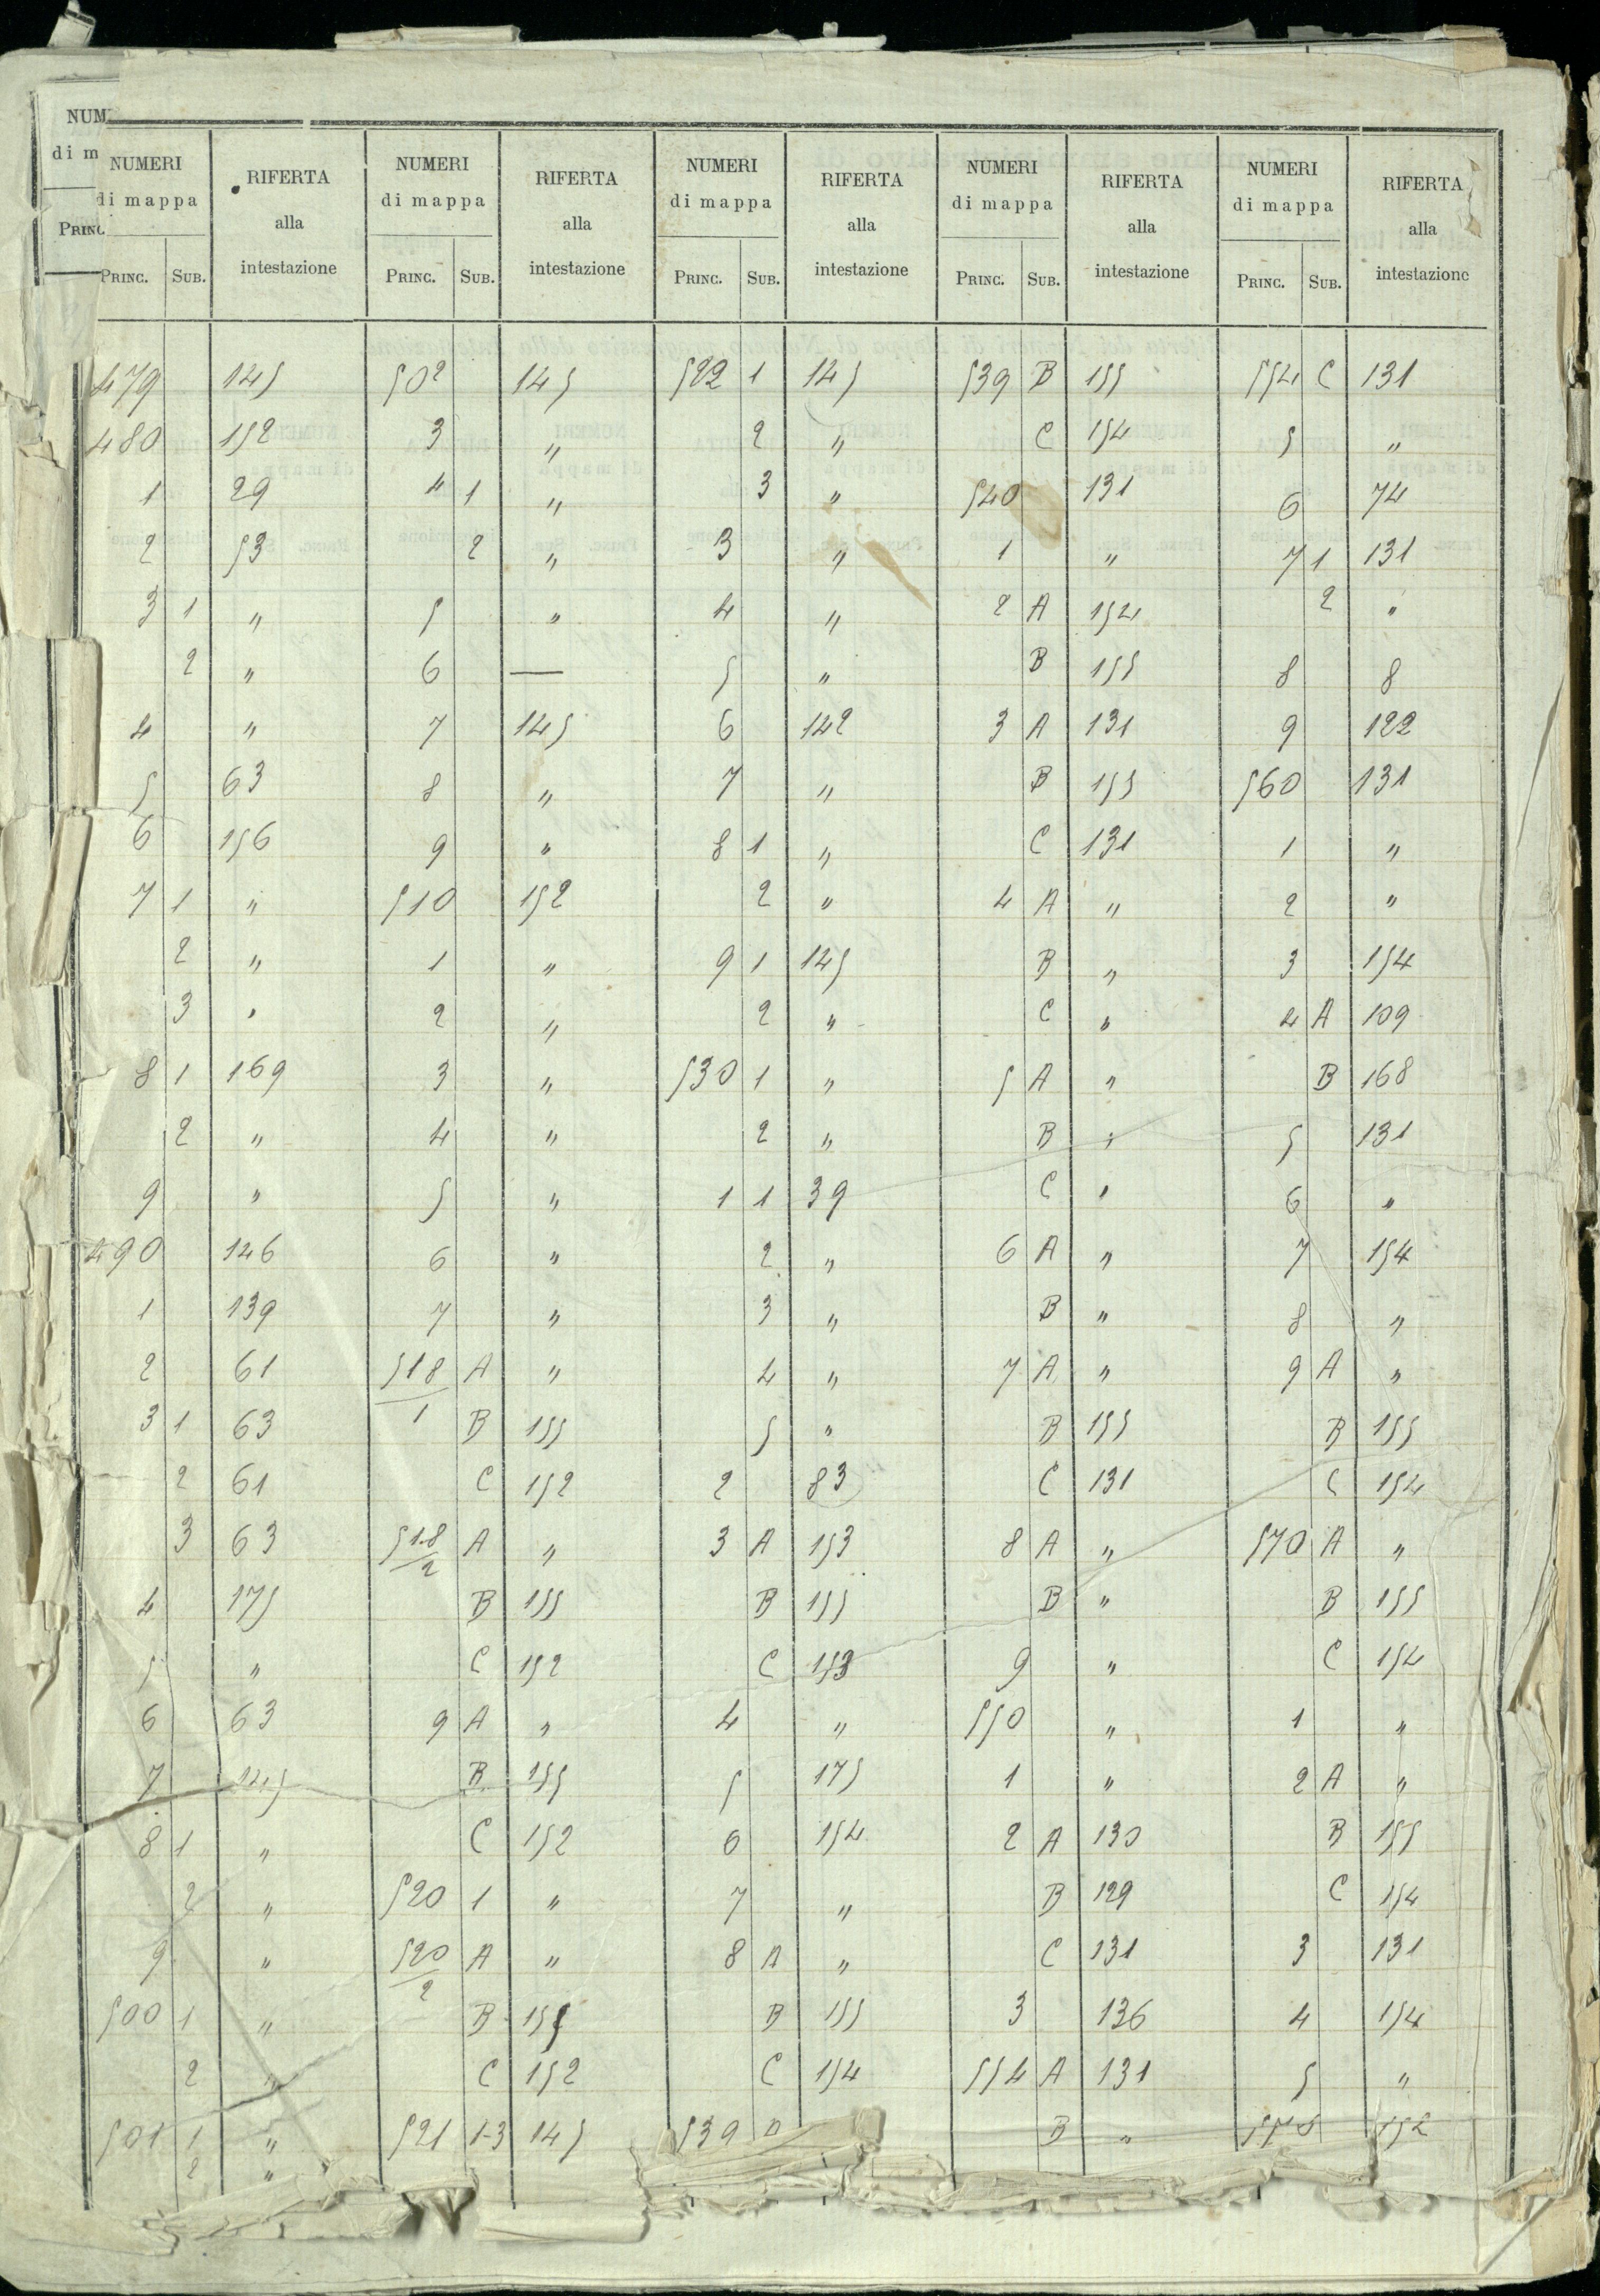 NUM
di m
PRINC
NUMERI di mappa RIFERTA alla intestazione NUMERI di mappa RIFERTA alla intestazione NUMERI di mappa RIFERTA alla intestazione NUMERI di mappa RIFERTA alla intestazione NUMERI di mappa RIFERTA alla intestazione
PRINC. SUB. PRINC. SUB. PRINC. SUB. PRINC. SUB. PRINC. SUB.
479 145 502 145 522 1 145 539 B 155 554 C 131
480 152 3 " 2 " C 154 5 "
1 29 4 1 " 3 " 540 131 6 74
2 53 2 " 3 " 1 " 7 1 131
3 1 " 5 " 4 " 2 A 154 2 "
2 " 6 — 5 " B 155 8 8
4 " 7 145 6 142 3 A 131 9 122
5 63 8 " 7 " B 155 560 131
6 156 9 " 8 1 " C 131 1 "
7 1 " 510 152 2 " 4 A " 2 "
2 " 1 " 9 1 145 B " 3 154
3 " 2 " 2 " C " 4 A 109
8 1 169 3 " 530 1 " 5 A " B 168
2 " 4 " 2 " B " 5 131
9 " 5 " 1 1 39 C " 6 "
490 146 6 " 2 " 6 A " 7 154
1 139 7 " 3 " B " 8 "
2 61 518/1 A " 4 " 7 A " 9 A "
3 1 63 B 155 5 " B 155 B 155
2 61 C 152 2 83 C 131 C 154
3 63 518/2 A " 3 A 153 8 A " 570 A "
4 175 B 155 B 155 B " B 155
5 " C 152 C 153 9 " C 154
6 63 9 A " 4 " 550 " 1 "
7 145 B 155 5 175 1 " 2 A "
8 1 " C 152 6 154 2 A 130 B 155
2 " 520 1 " 7 " B 129 C 154
9 " 520/2 A " 8 A " C 131 3 131
500 1 " B 155 B 155 3 136 4 154
2 " C 152 C 154 554 A 131 5 "
501 1 " 521 1-3 145 539 B " 152
2 "